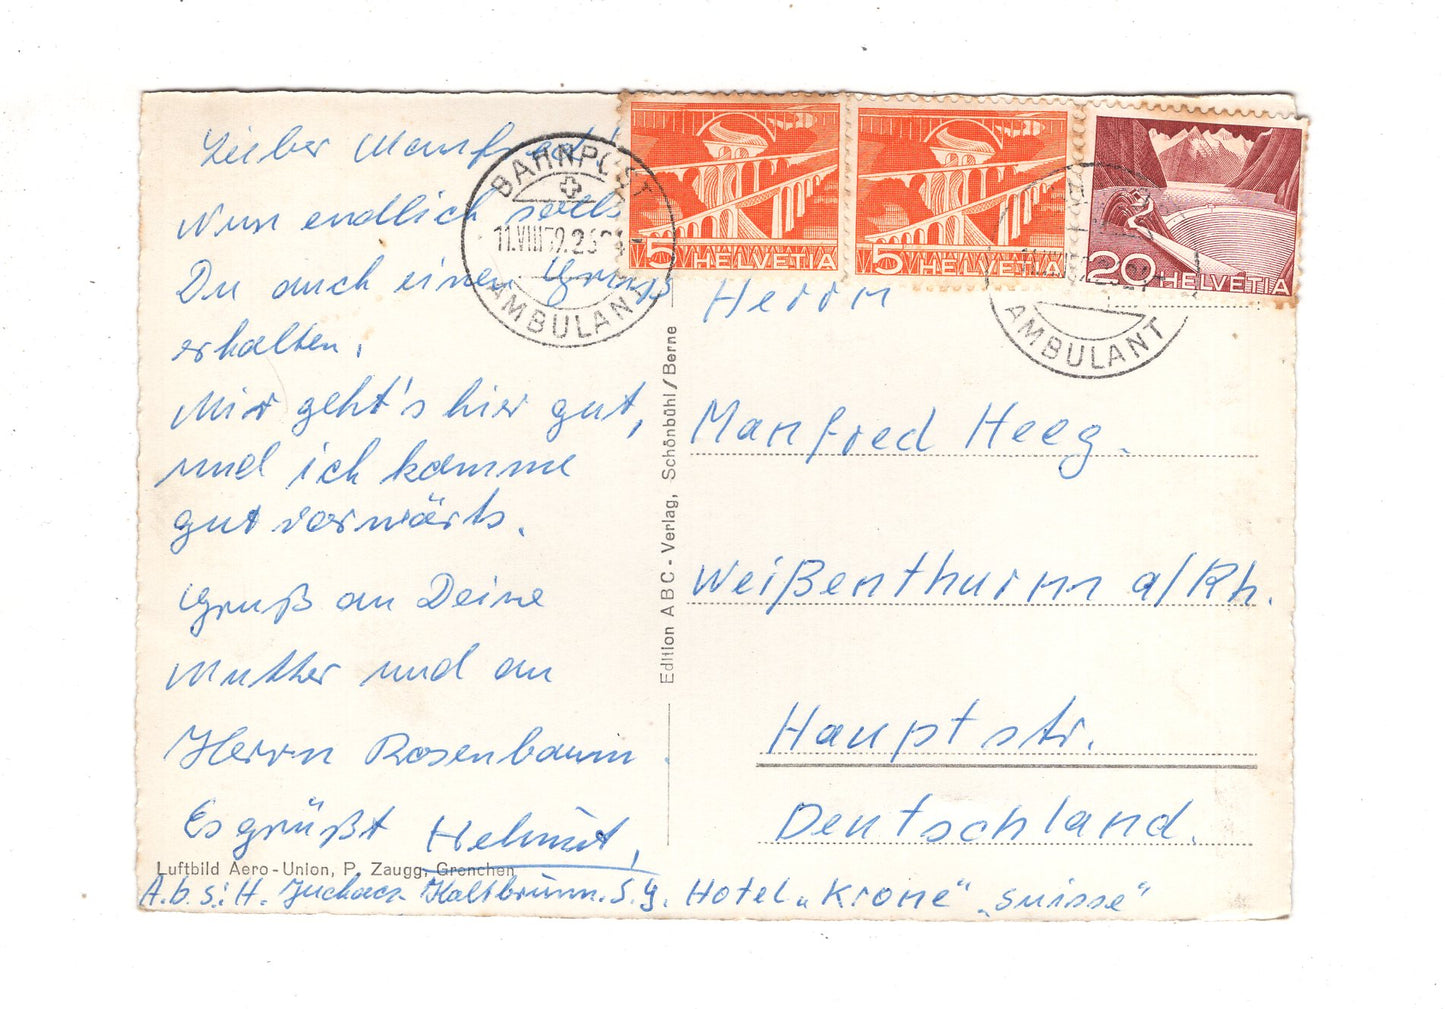 Lieber Manfred!
Nun endlich sollst
Du auch einen Gruß
erhalten.
Mir geht's hier gut,
und ich komme
gut vorwärts.
Gruß an Deine
Mutter und an
Herrn Rosenbaum
Es grüßt Helmut,
Luftbild Aero-Union, P. Zaugg, Grenchen
A.b.s.: H. Kaltbrunn. S.G. Hotel „Krone" „Suisse"
Edition ABC - Verlag, Schönbühl/Berne
BAHNPOST
11.VIII
AMBULANT
5 HELVETIA
5 HELVETIA
20 HELVETIA
AMBULANT
Herrn
Manfred Heeg.
Weißenthurm a/Rh.
Hauptstr.
Deutschland.